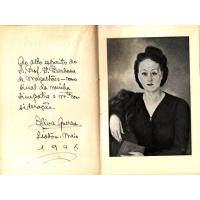 Ao alto espirito do
Sr. Prof. Dr. Barbosa
de Magalhães — como
sinal da minha
simpatia e
consideração.
Oliva Guerra
Lisboa. Maio
1946